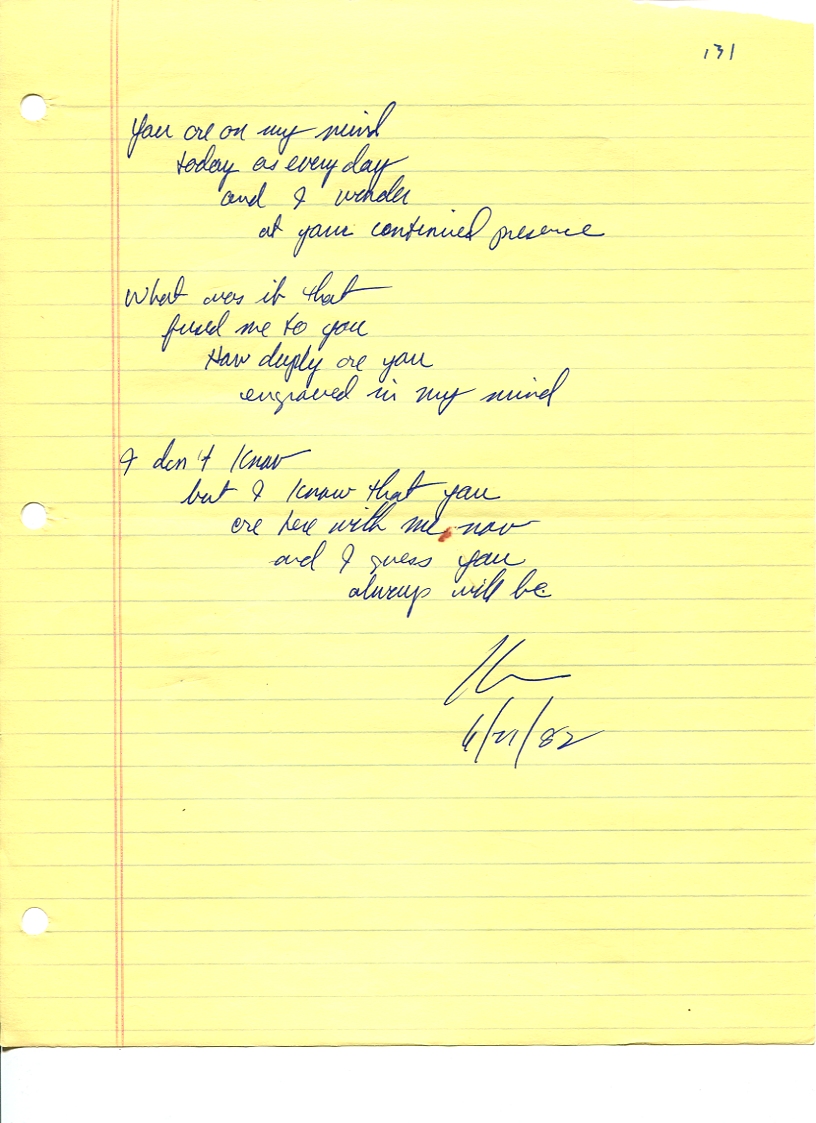 131
You are on my mind
today as every day
and I wonder
at your continued presence
What was it that
fused me to you
How deeply are you
engraved in my mind
I don't know
but I know that you
are here with me now
and I guess you
always will be
6/21/82